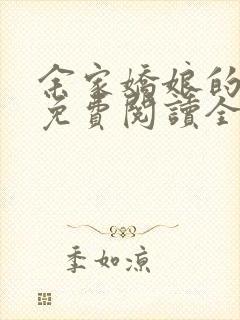 余家嬌娘的
免費閱讀全
季如凉